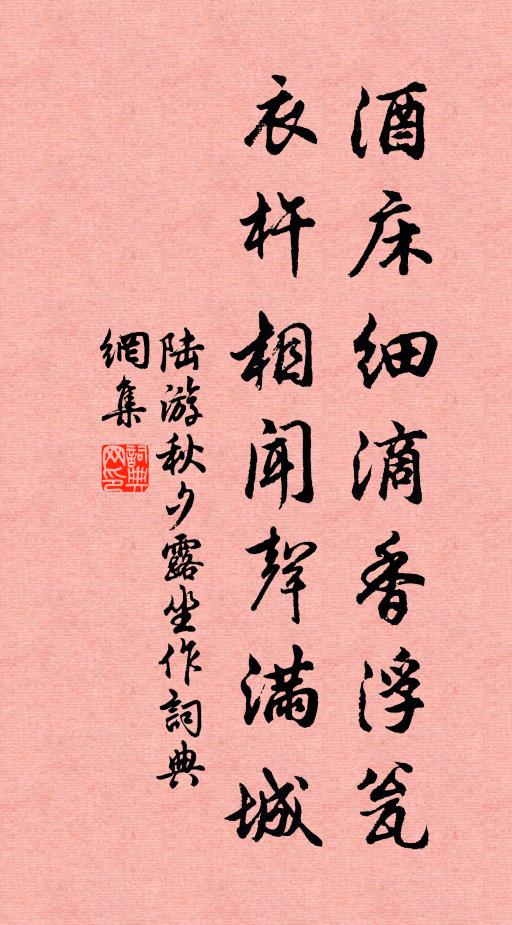 酒床细滴香浮瓮
衣杵相闻声满城
陆游秋夕露坐作詞典
網集
詞典
网印